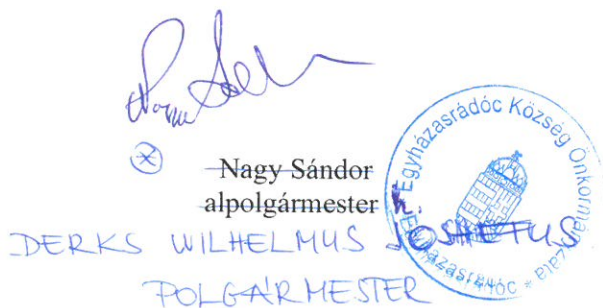 Nagy Sándor
alpolgármester
h.
DERKS WILHELMUS
POLGÁRMESTER
Egyházasrádóc Község Önkormányzata
Egyházasrádóc *